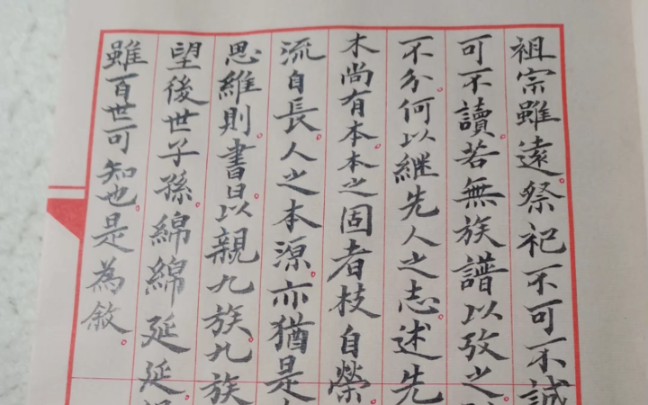 祖宗雖遠。祭祀不可不誠
可不讀。若無族譜以攷之
不分。何以継先人之志。述先
木尚有本。本之固者枝自榮。
流自長。人之本源。亦猶是
思維。則書曰。以親九族。九族
望後世子孫。綿綿延延。
雖百世可知也。是為敘。